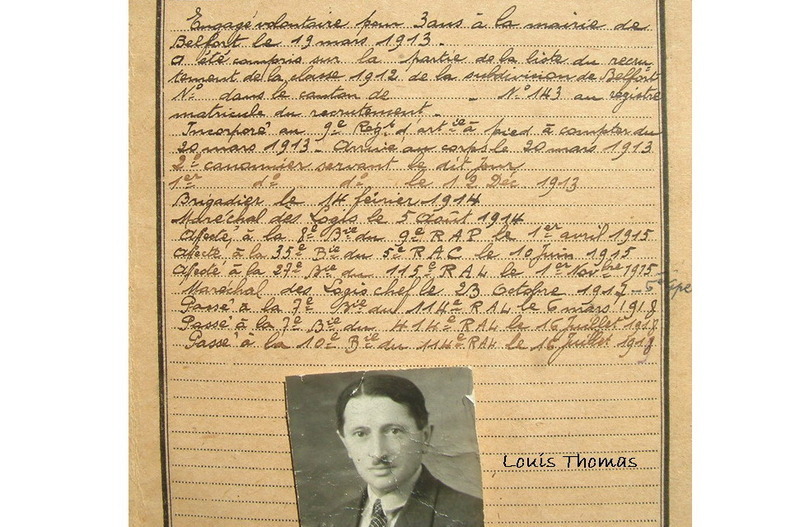 Engagé volontaire pour 3 ans à la mairie de
Belfort le 19 mars 1913.
A été compris sur la partie de la liste du recru-
tement de la classe 1912 de la subdivision de Belfort
N° dans le canton de - N° 143 au registre
matricule du recrutement.
Incorporé au 9e Regt d'artie à pied à compter du
20 mars 1913. Arrivé au corps le 20 mars 1913
2e canonnier servant le dit jour
1er do do le 12 Déc 1913
Brigadier le 14 février 1914
Maréchal des Logis le 5 Août 1914
Affecté à la 8e Bie du 9e RAP le 1er avril 1915
Affecté à la 35e Bie du 5e RAC le 10 Juin 1915
Affecté à la 27e Bie du 115e RAL le 1er Novbre 1915
Maréchal des Logis chef le 23 Octobre 1917
Passé à la 7e Bie du 114e RAL le 6 mars 1918
Passé à la 7e Bie du 414e RAL le 16 juillet 1918
Passé à la 10e Bie du 114e RAL le 16 juillet 1918
Louis Thomas